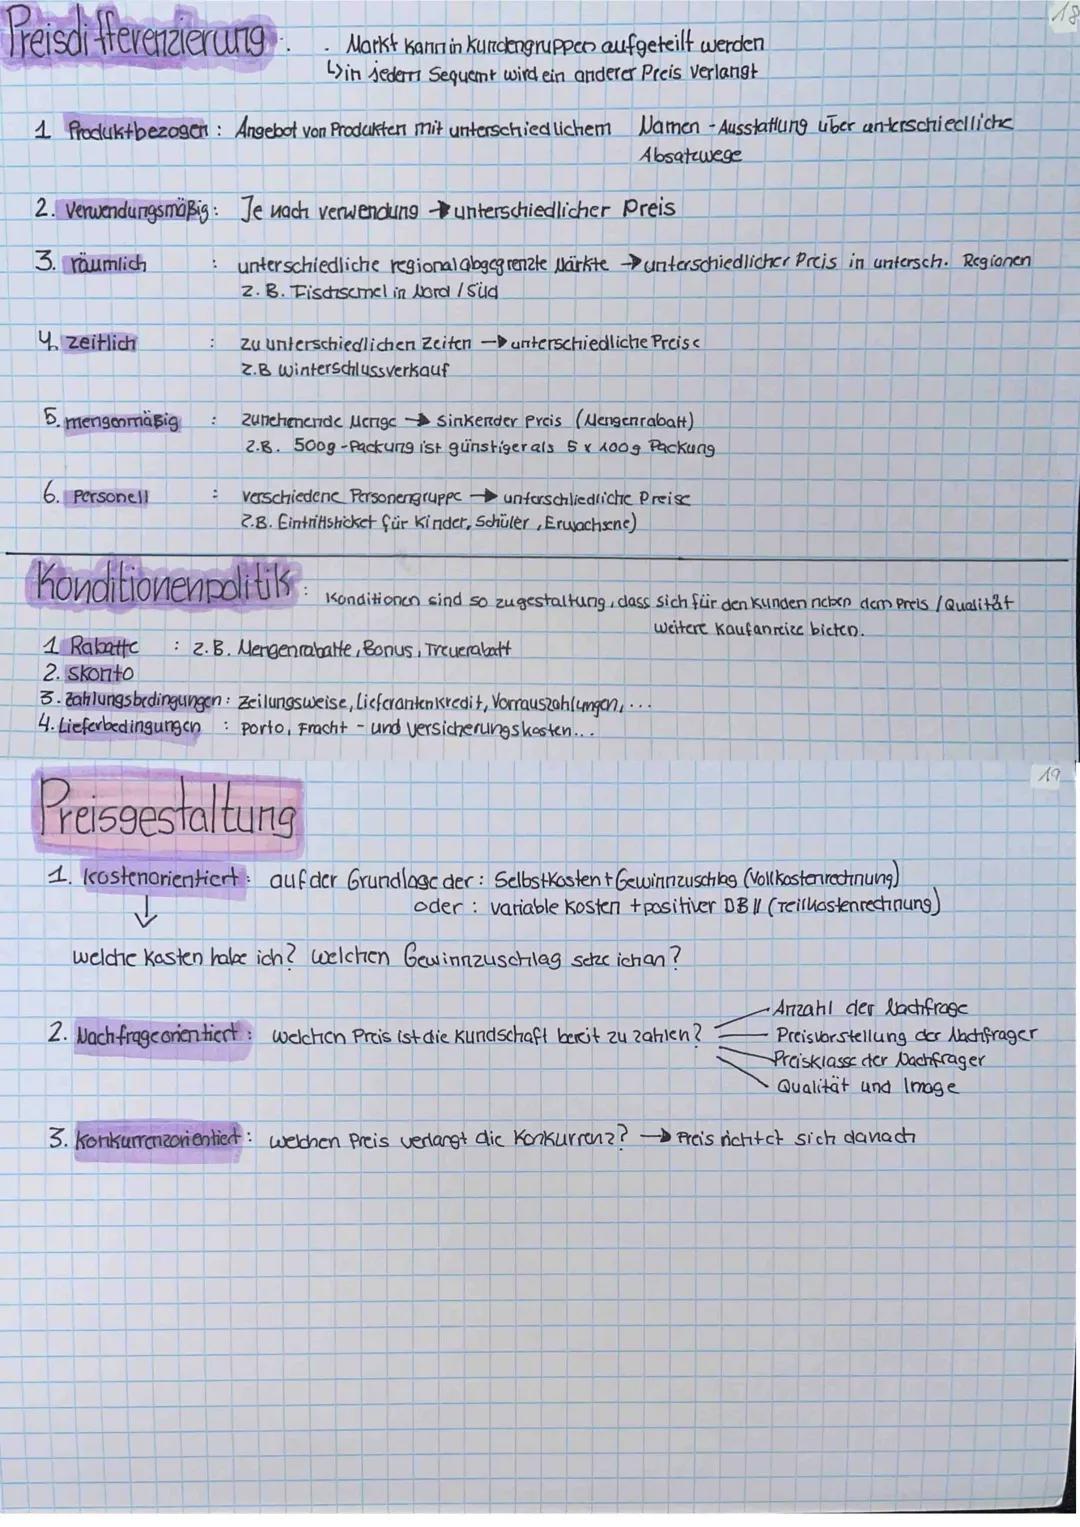 18
Preisdifferenzierung : . Markt kann in Kundengruppen aufgeteilt werden
↳ in jedem Sequemt wird ein anderer Preis verlangt
1 Produktbezogen : Angebot von Produkten mit unterschiedlichem Namen - Ausstattung über unterschiedliche
Absatzwege
2. Verwendungsmäßig : Je nach verwendung → unterschiedlicher Preis
3. räumlich : unterschiedliche regional abgegrenzte Märkte → unterschiedlicher Preis in untersch. Regionen
z.B. Fischsemel in Nord / Süd
4. zeitlich : zu unterschiedlichen Zeiten → unterschiedliche Preise
z.B Winterschlussverkauf
5. mengenmäßig : zunehmende Menge → sinkender Preis (Mengenrabatt)
z.B. 500g - Packung ist günstiger als 5 x 100g Packung
6. Personell : verschiedene Personengruppe → unterschliedliche Preise
z.B. Eintrittsticket für Kinder, Schüler, Erwachsene)
Konditionenpolitik : Konditionen sind so zugestaltung, dass sich für den Kunden neben dem Preis / Qualität
weitere Kaufanreize bieten.
1 Rabatte : z.B. Mengenrabatte, Bonus, Treuerabatt
2. Skonto
3. Zahlungsbedingungen : Zeilungsweise, Lieferantenkredit, Vorrauszahlungen, ...
4. Lieferbedingungen : Porto, Fracht - und Versicherungskosten...
19
Preisgestaltung
1. Kostenorientiert : auf der Grundlage der : Selbstkosten + Gewinnzuschlag (Vollkostenrechnung)
oder : variable Kosten + positiver DB II (Teilkostenrechnung)
↓
welche Kosten habe ich? Welchen Gewinnzuschlag setze ich an?
2. Nachfrageorientiert : welchen Preis ist die Kundschaft bereit zu zahlen?
Anzahl der Nachfrage
Preisvorstellung der Nachfrager
Preisklasse der Nachfrager
Qualität und Image
3. Konkurrenzorientiert : welchen Preis verlangt die Konkurrenz? → Preis richtet sich danach